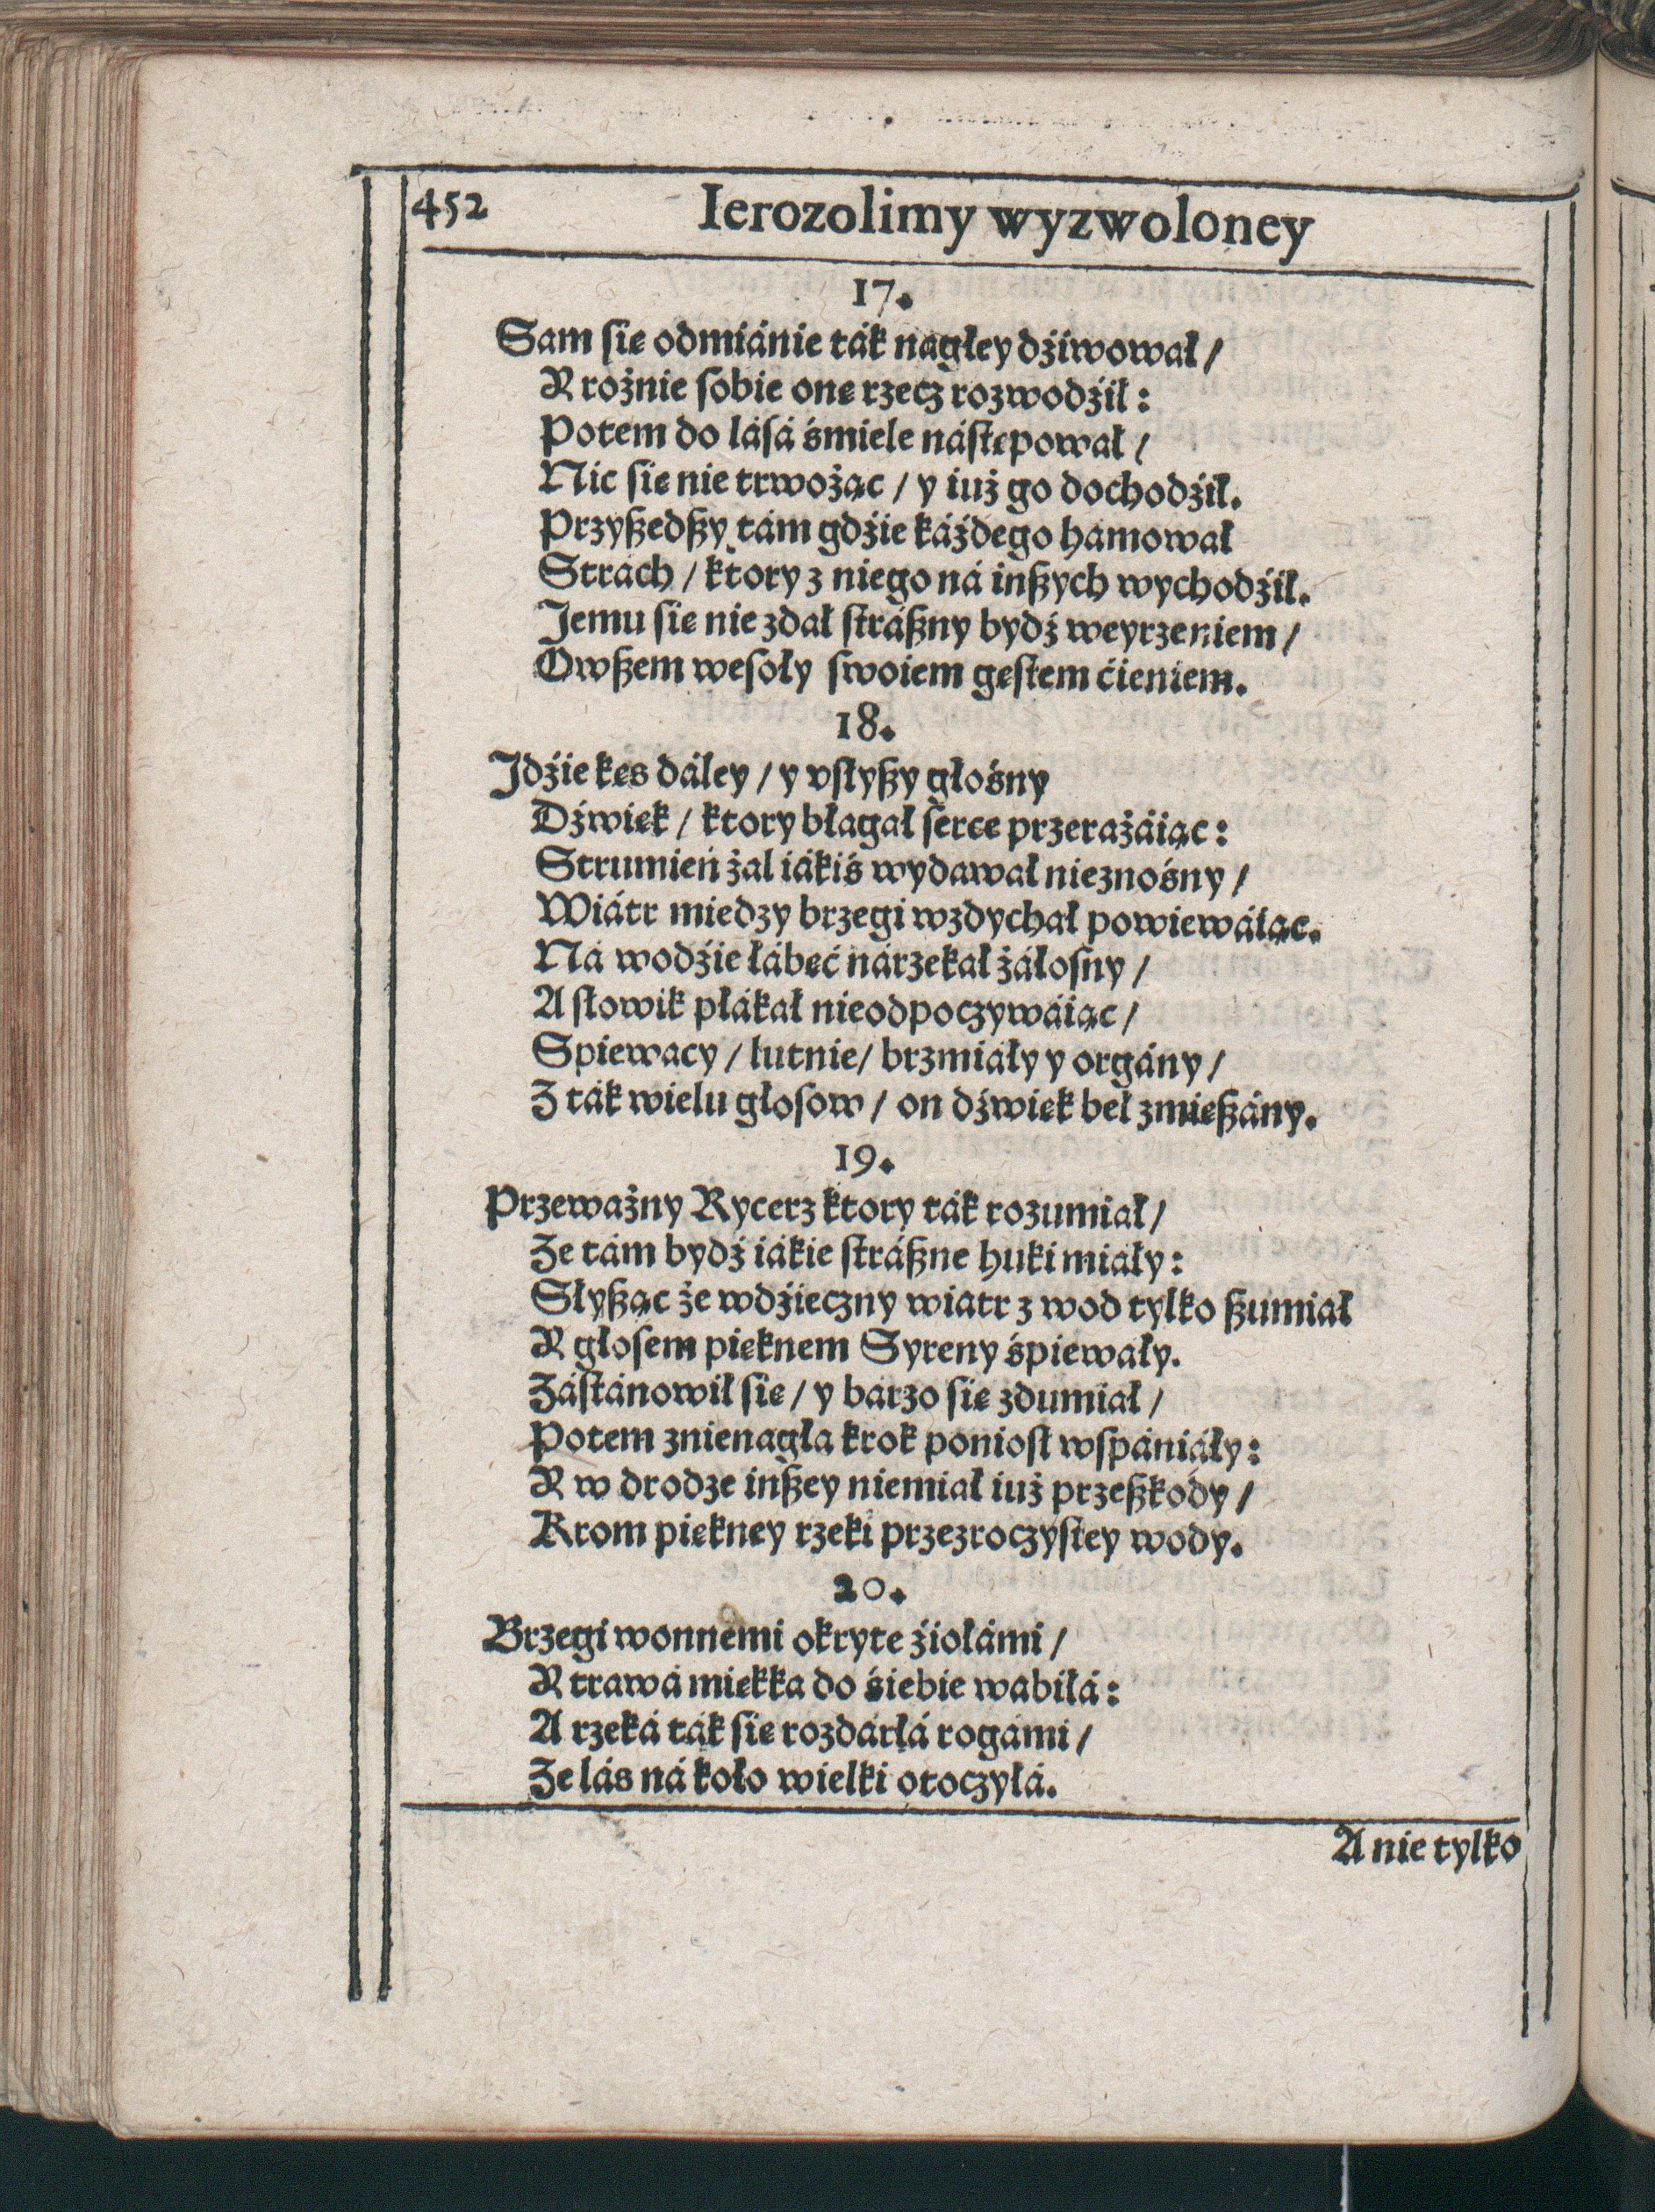 452 Ierozolimy wyzwoloney
17.
Sam się odmiánie ták nagłey dźiwował /
Y rożnie sobie onę rzecz rozwodźił:
Potem do lásá śmiele nástępował /
Nic się nie trwożąc / y iuż go dochodźił.
Przyszedszy tám gdźie káżdego hámował
Strách / ktory z niego ná inszych wychodźił.
Jemu się nie zdał strászny bydź weyrzeniem /
Owszem wesoły swoiem gęstem ćieniem.
18.
Jdźie kęs dáley / y vsłyszy głośny
Dźwięk / ktory błagał serce przerażáiąc:
Strumień żal iákiś wydawał nieznośny /
Wiátr miedzy brzegi wzdychał powiewáiąc.
Ná wodźie łábęć nárzekał żáłosny /
A słowik płákał nieodpoczywáiąc /
Spiewacy / lutnie / brzmiáły y orgány /
Z ták wielu głosow / on dźwięk beł zmieszány.
19.
Przeważny Rycerz ktory ták rozumiał /
Ze tám bydź iákie strászne huki miáły:
Słysząc że wdźięczny wiatr z wod tylko szumiał
Y głosem pięknem Syreny śpiewáły.
Zástánowił się / y bárzo się zdumiał /
Potem znienagłá krok poniosł wspániáły:
Y w drodze inszey niemiał iuż przeszkody /
Krom piękney rzeki przezroczystey wody.
20.
Brzegi wonnemi okryte źiołámi /
Y trawá miękka do śiebie wabiłá:
A rzeká ták się rozdárłá rogámi /
Ze lás ná koło wielki otoczyłá.
A nie tylko